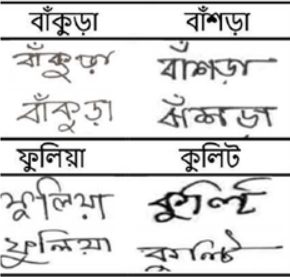 বাঁকুড়া বাঁশড়া
বাঁকুড়া বাঁশড়া
বাঁকুড়া বাঁশড়া
ফুলিয়া কুলিট
ফুলিয়া কুলিট
ফুলিয়া কুলিট